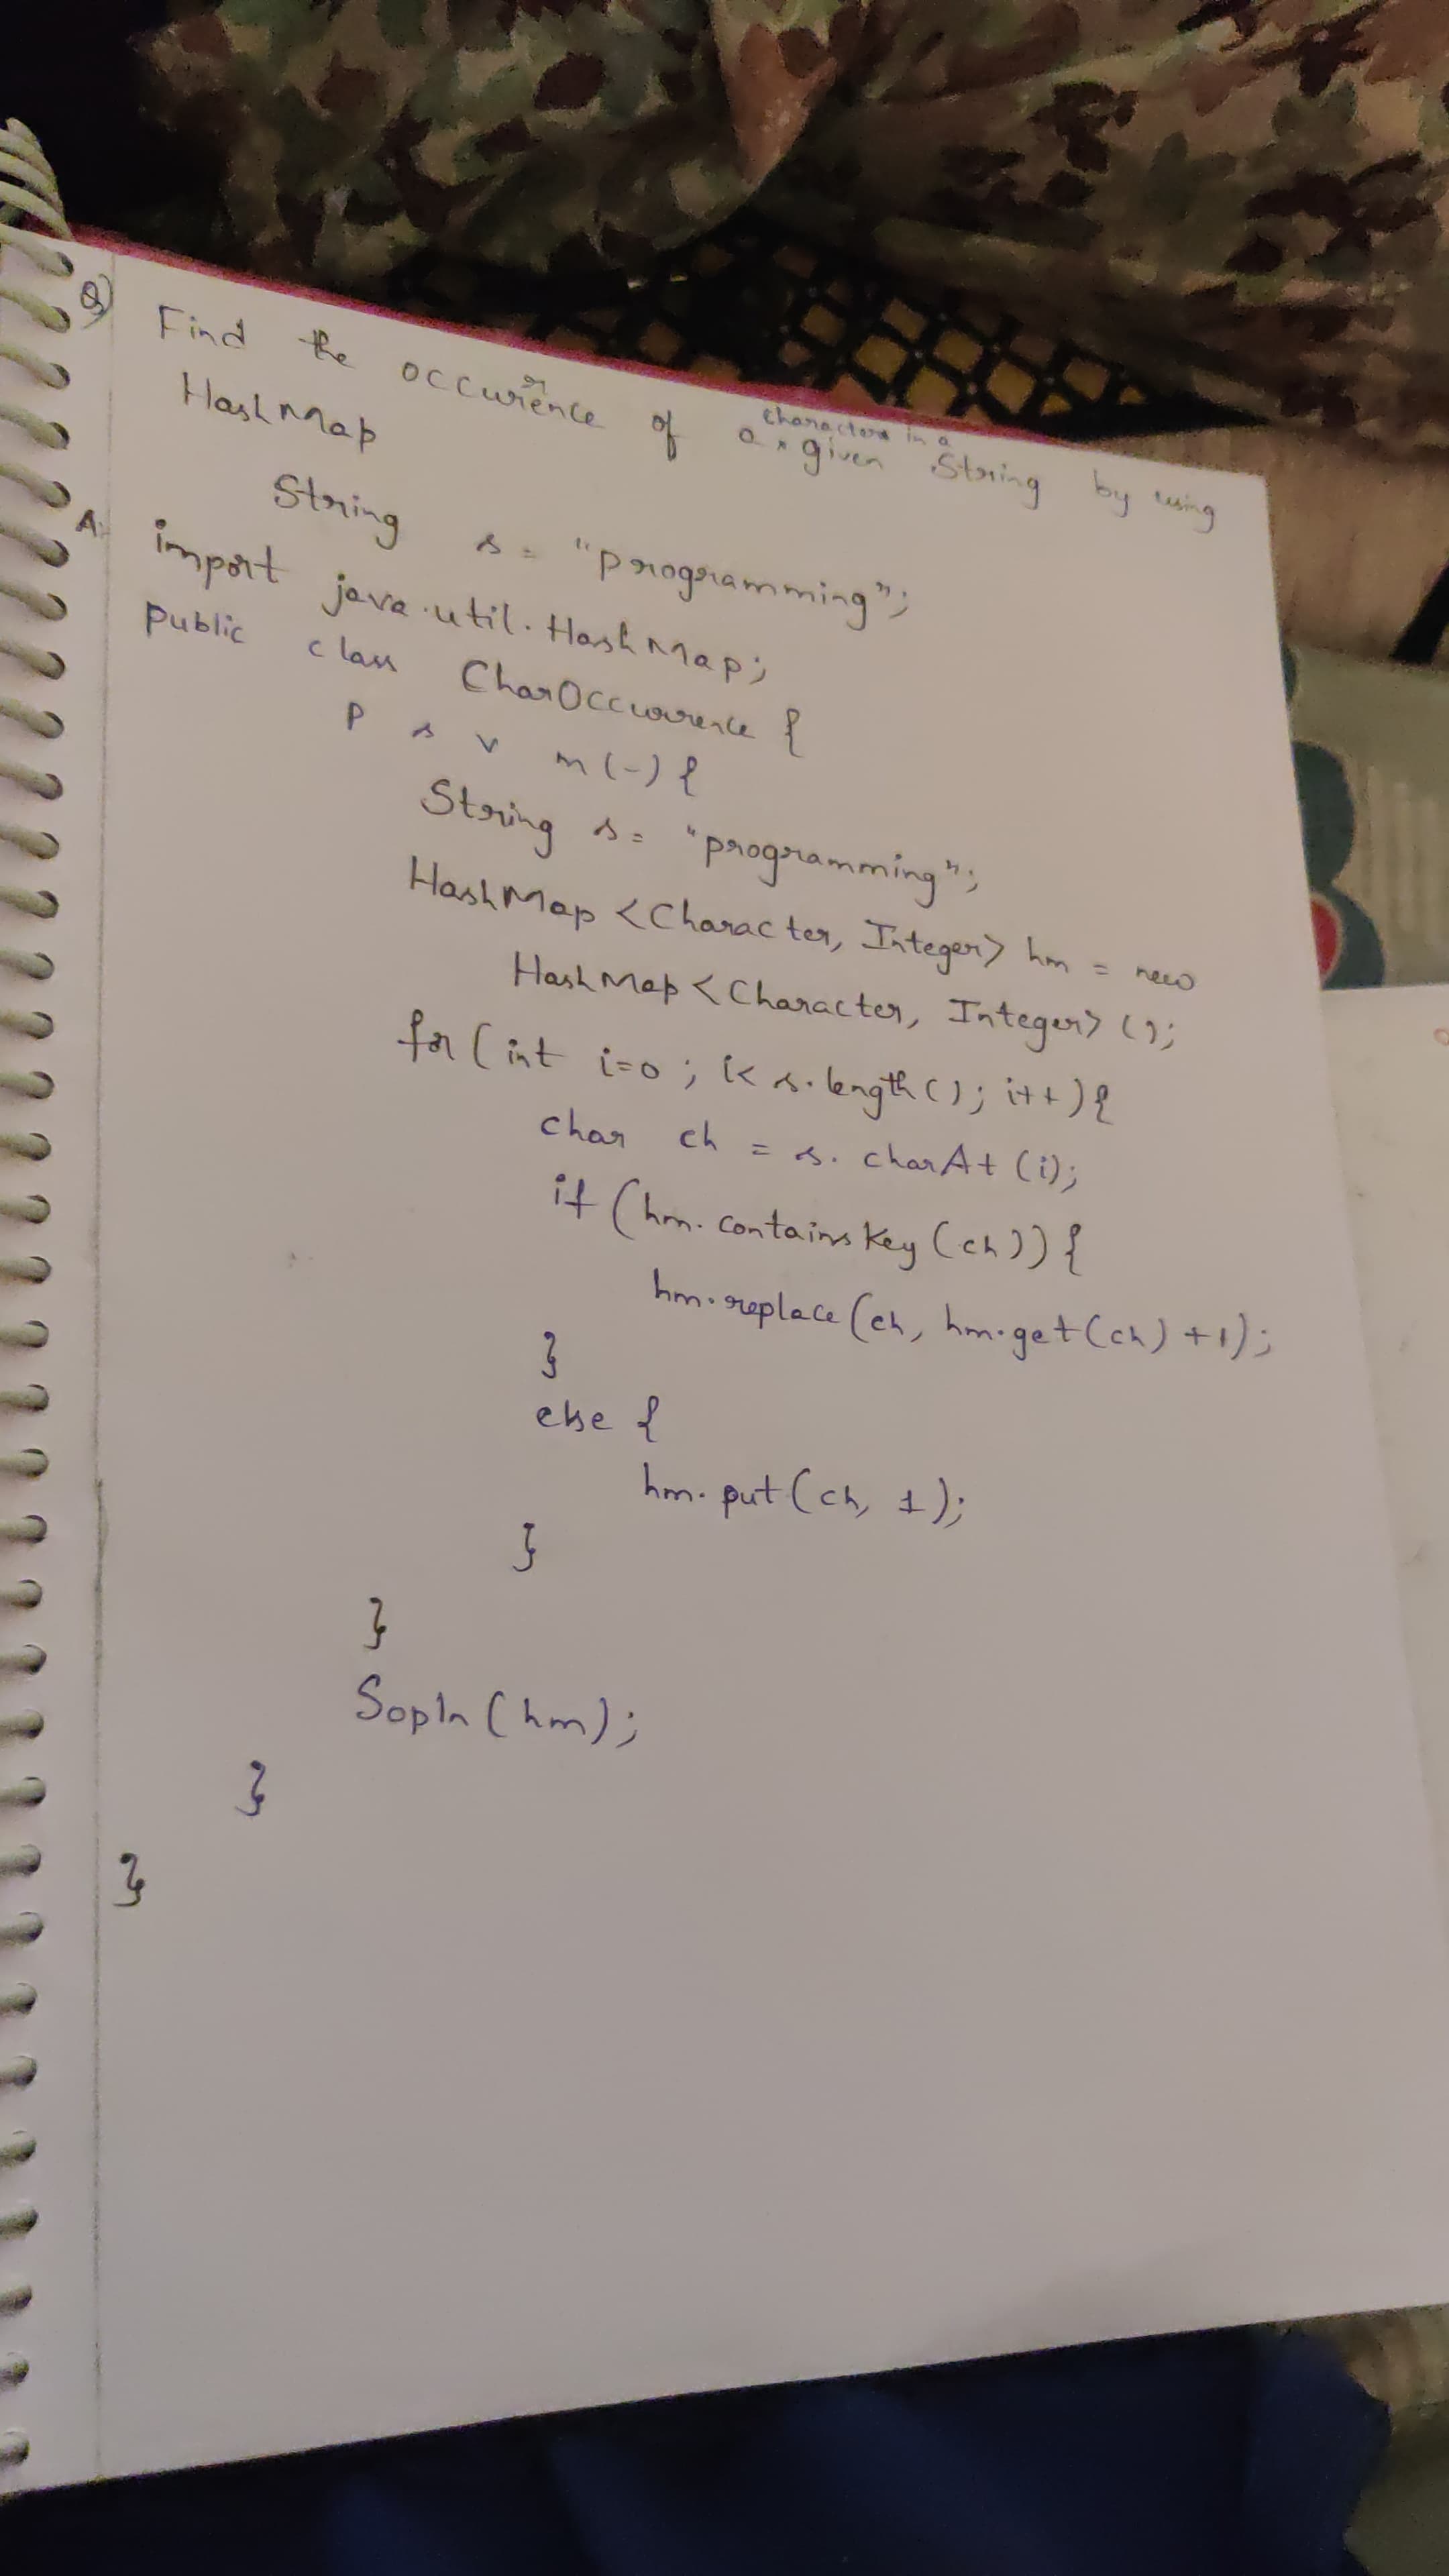 Q) Find the occurrence of a characters in a given String by using
HashMap
String s = "programming";
A: import java.util.HashMap;
public class CharOccurrence {
P s v m(-) {
String s = "programming";
HashMap <Character, Integer> hm = new
HashMap <Character, Integer> ();
for (int i=0; i< s.length(); i++) {
char ch = s.charAt(i);
if (hm.containsKey(ch)) {
hm.replace(ch, hm.get(ch) +1);
}
else {
hm.put(ch, 1);
}
}
Sopln(hm);
}
}